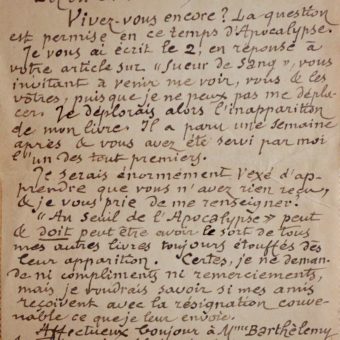 Vivez-vous encore ? La question
est permise en ce temps d'Apocalypse.
Je vous ai écrit le 2, en réponse à
votre article sur « Sueur de Sang », vous
invitant à venir me voir, vous & les
vôtres, puisque je ne peux pas me dépla-
cer. Je déplorais alors l'inapparition
de mon livre. Il a paru une semaine
après & vous avez été servi par moi
l'un des tout premiers.
Je serais énormément vexé d'ap-
prendre que vous n'avez rien reçu,
& je vous prie de me renseigner.
"Au Seuil de l'Apocalypse" peut
& doit peut être avoir le sort de tous
mes autres livres toujours étouffés dès
leur apparition. Certes, je ne deman-
de ni compliments ni remerciements,
mais je voudrais savoir si mes amis
reçoivent avec la résignation conve-
nable ce que je leur envoie.
Affectueux bonjour à Mme Barthélemy